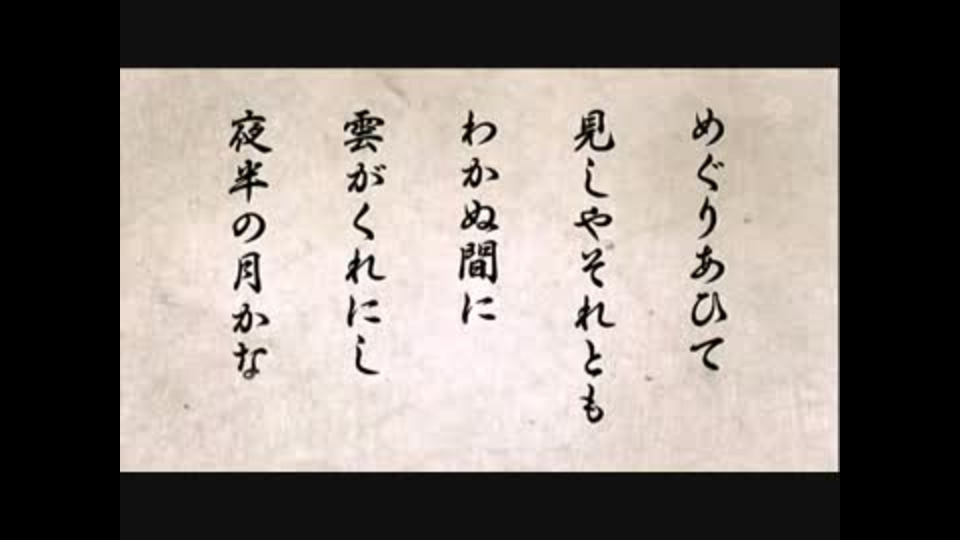 めぐりあひて
見しやそれとも
わかぬ間に
雲がくれにし
夜半の月かな